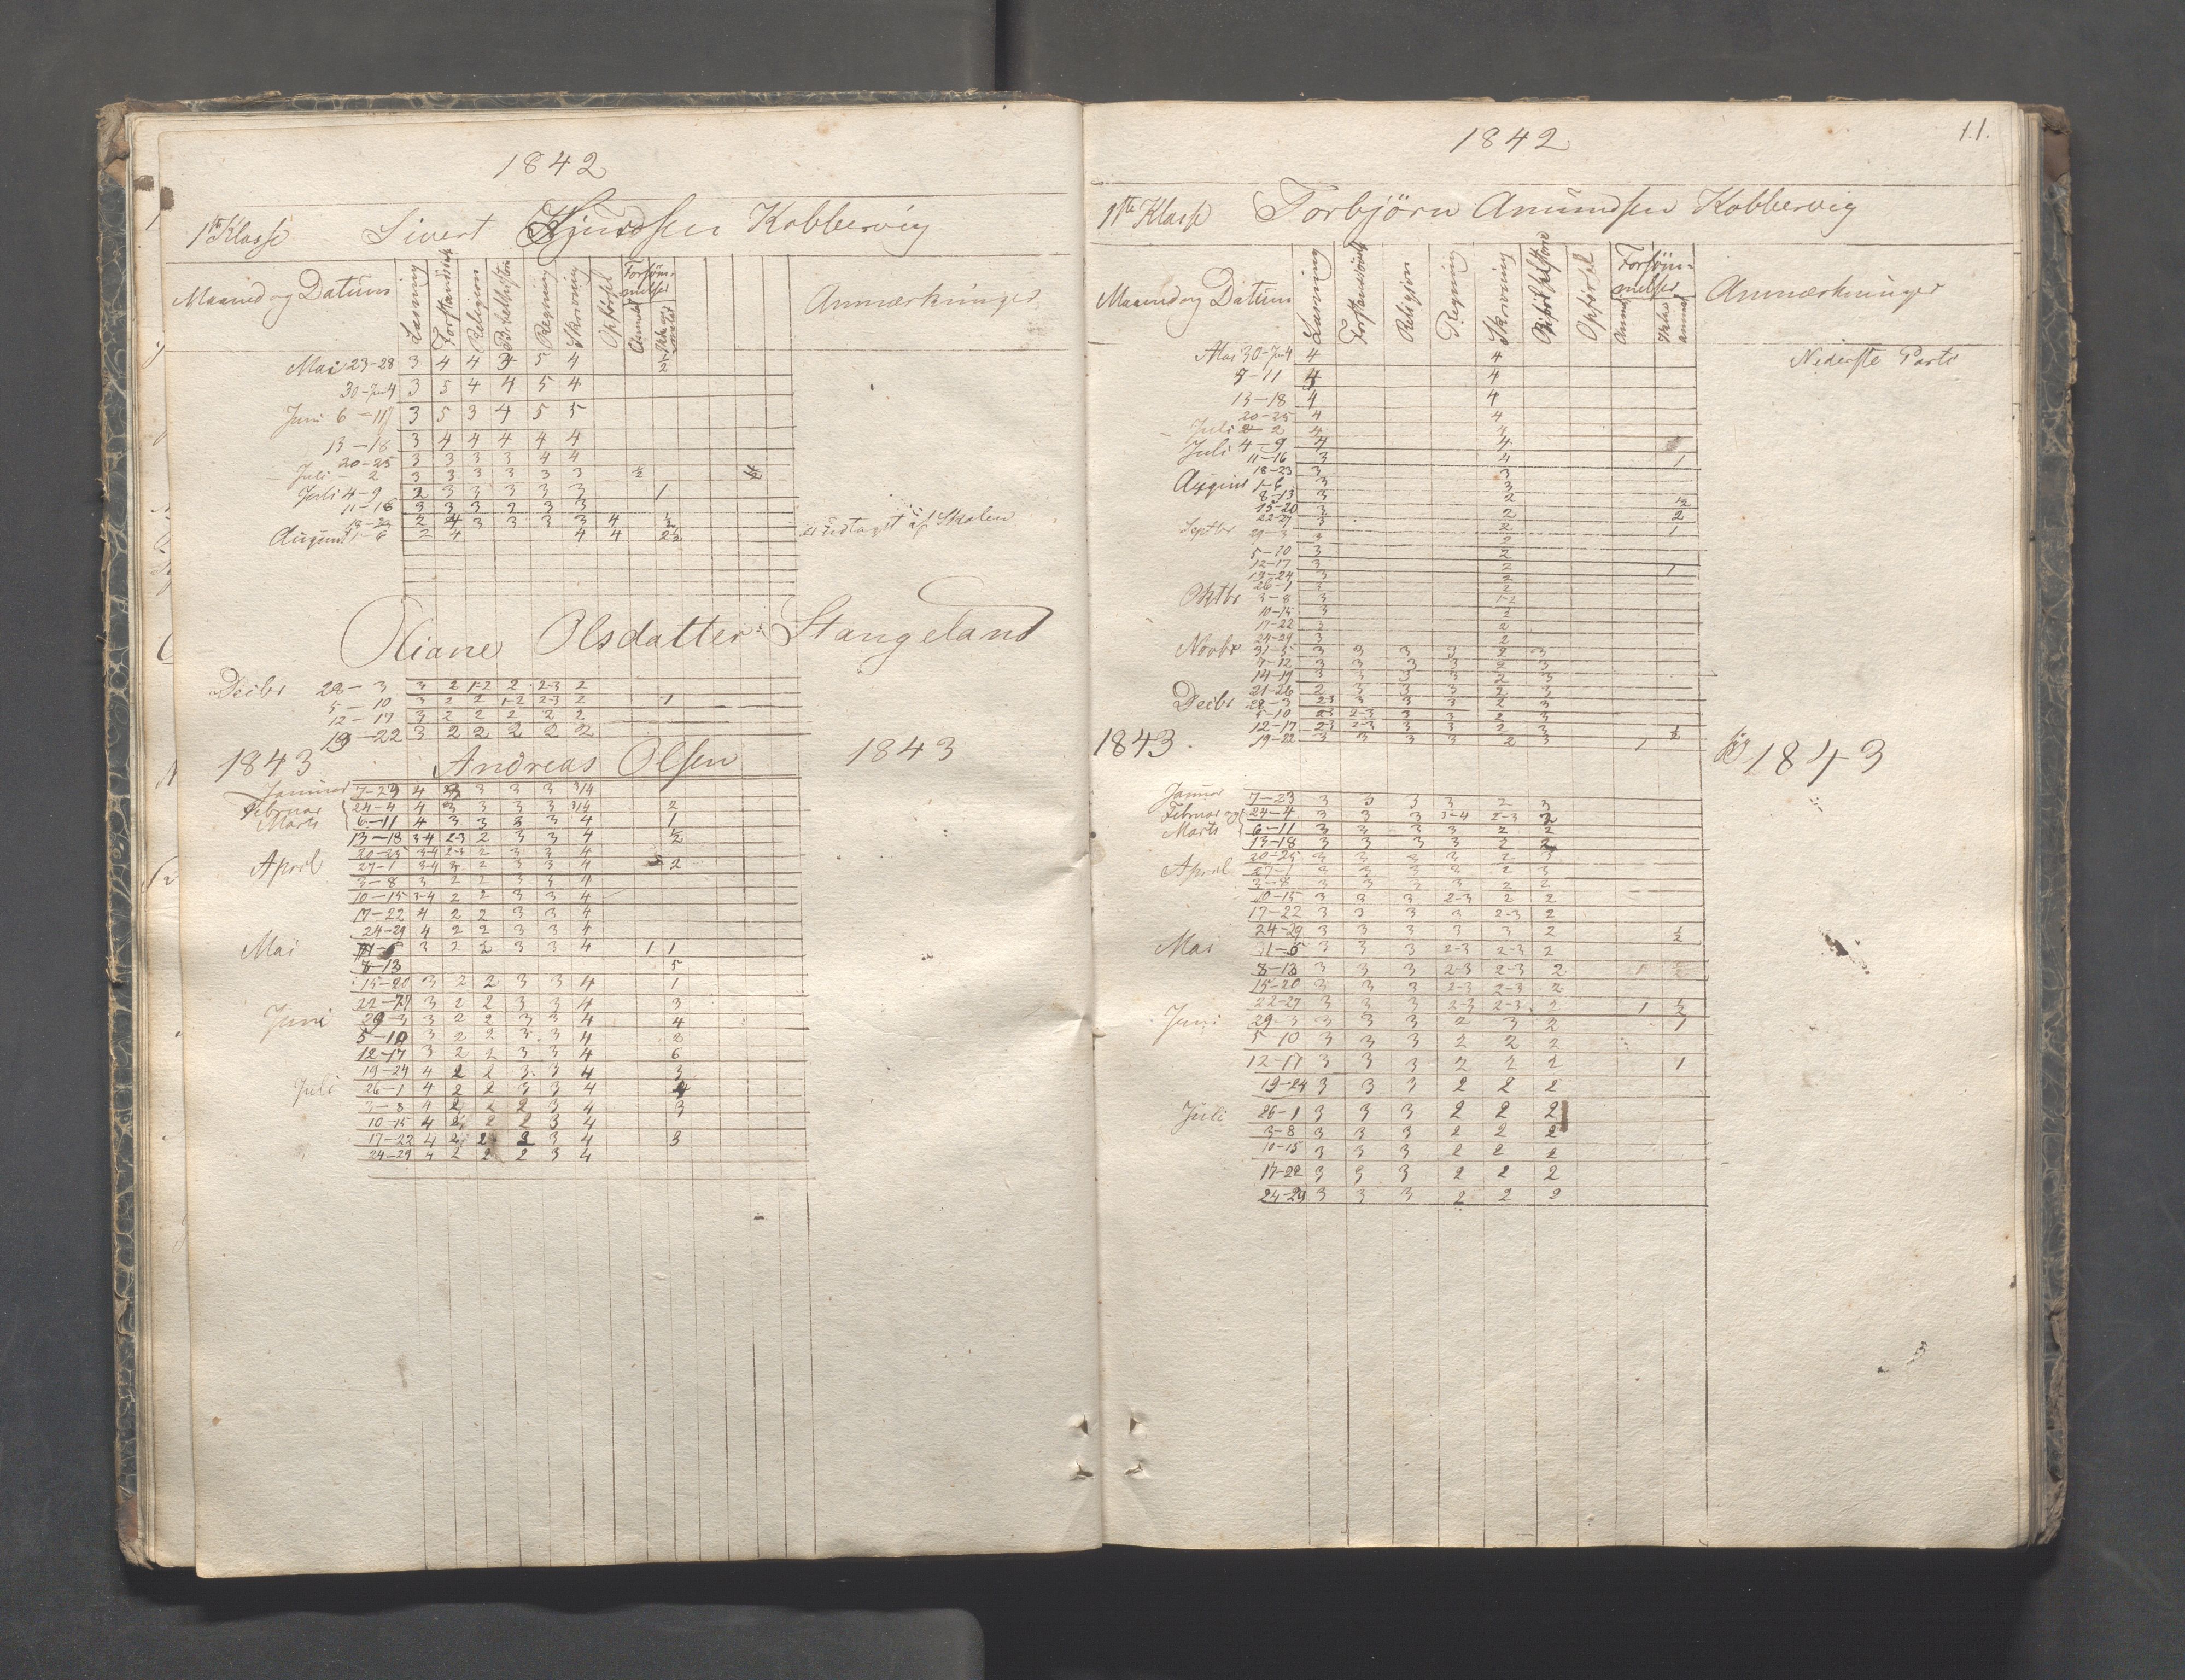 1842
1ste Klasse Sivert Knudsen Kobbervig
Maaned og Datum Læsning Religion Bibelhistorie Regning Skrivning Opførsel Forsømmelser Anmeldt Anmærkninger
Mai 23-28 3 4 4 3 5 4 ½
30-Jun 4 3 5 4 4 5 4
Juni 6-11 3 5 3 4 5 5
13-18 3 4 4 4 4 4
20-25 3 3 3 3 4 4
Juli - 2 3 3 3 3 3 3 ½
Juli 4-9 2 3 3 3 3 3 1
11-16 3 3 3 3 3 3
18-23 2 4 3 3 3 3 4 ½
August 1-6 2 4 4 4 2½ er udtaget af Skolen
Oliane Olsdatter Stangeland
Decbr 28-3 3 2 1-2 2 2-3 2
5-10 3 2 2 1-2 2-3 2 1
12-17 3 2 2 2 2 2
19-22 3 2 2 2 2 2
1843 Andreas Olsen 1843
Januar 7-23 4 3 3 3 3/4
Februar 24-4 4 3 3 3 3 3/4 2
Marts 6-11 4 3 3 3 3 4 1
13-18 3-4 2-3 2 3 3 4 ½
20-25 3-4 2-3 2 3 3 4
April 27-1 3-4 3 2 3 3 4 2
3-8 3 2 2 3 3 4
10-15 3-4 2 2 3 3 4
17-22 4 2 2 3 3 4
24-29 4 2 2 3 3 4
Mai 3 2 2 3 3 4 1 1
8-13 5
15-20 3 2 2 3 3 4 1
22-27 3 2 2 3 3 4 3
Juni 29-3 3 2 2 3 3 4 4
5-10 3 2 2 3 3 4 2
12-17 3 2 2 3 3 4 6
19-24 4 2 2 3 3 4 3
Juli 26-1 4 2 2 3 3 4 4
3-8 4 2 2 2 3 4 3
10-15 4 2 2 2 3 4
17-22 4 2 2 2 3 4 3
24-29 4 2 2 2 3 4
1842 11.
1ste Klasse Torbjörn Amundsen Kobbervig
Maaned og Datum Læsning Religion Regning Skrivning Bibelhistorie Opførsel Forsømmelser Anmeldt Anmærkninger
Mai 30-Jun 4 4 4 Nederste Parti
7-11 4 4
13-18 4 4
20-25 4 4
Juli 2 4 4
Juli 4-9 4 4
11-16 3 4 1
18-23 3 3
August 1-6 3 3
8-13 3 2 ½
15-20 3 2 2
22-27 3 2 1
Septbr 29-3 3 2
5-10 3 2
12-17 3 2 1
19-24 3 2
26-1 3 2
Oktbr 3-8 3 1-2
10-15 3 2
17-22 3 2
24-29 3 2
Novbr 31-5 3 3 3 3 2 3
7-12 3 3 3 3 2 3
14-19 3 3 3 3 2 3
21-26 2 3 3 3 2 3
Decbr 28-3 2-3 3 3 3 2 3
5-10 2-3 2-3 3 3 2 3
12-17 2-3 2-3 3 3 2 3 ½
19-22 3 3 3 3 2 3 1
1843 1843
Januar 7-23 3 3 3 3 2 3
Februar og 24-4 3 3 3 3-4 2-3 2
Marts 6-11 3 3 3 3 2 2
13-18 3 3 3 3 2 2
20-25 3 3 3 3 2 3
April 27-1 3 3 3 3 2 3
3-8 3 3 3 3 2 2
10-15 3 3 3 2-3 2 2
17-22 3 3 3 3 2-3 2
24-29 3 3 3 3 3 2 ½
Mai 31-5 3 3 3 2-3 2-3 2
8-13 3 3 3 2-3 2-3 2 1
15-20 3 3 3 2-3 2-3 2
22-27 3 3 3 2-3 2-3 2 1 ½
Juni 29-3 3 3 3 2 3 2 1
5-10 3 3 3 2 2 2
12-17 3 3 3 2 2 2 1
19-24 3 3 3 2 2 2
Juli 26-1 3 3 3 2 2 2
3-8 3 3 3 2 2 2
10-15 3 3 3 2 2 2
17-22 3 3 3 2 2 2
24-29 3 3 3 2 2 2